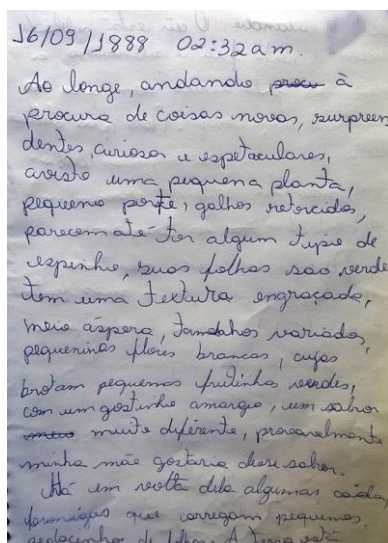 16/09/1888 02:32am.
Ao longe, andando procu à
procura de coisas novas, surpreen
dentes, curiosas e espetaculares,
avisto uma pequena planta,
pequeno porte, galhos retorcidos,
parecem até ter algum tipo de
espinho, suas folhas são verde
tem uma textura engraçada,
meio áspera, tamanhos variados,
pequeninas flores brancas, cujas
brotam pequenas frutinhas verdes,
com um gostinho amargo, um sabor
muito diferente, provavelmente
minha mãe gostaria desse sabor.
Há em volta dela algumas caída,
formigas que carregam pequenos
pedacinhos de folhas. A terra está